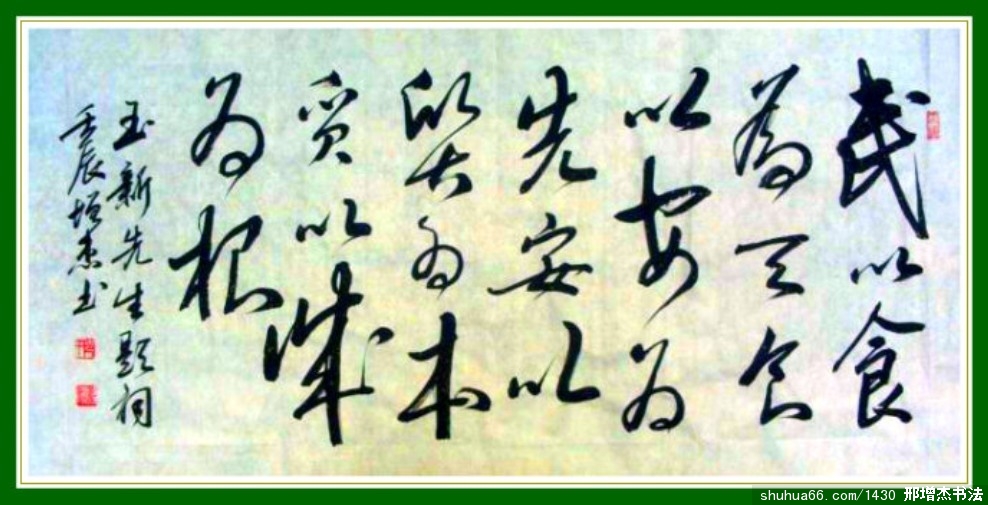 民以食
為天食
以安为
先安以
为本
以诚
为根
玉新先生题词
壬辰增杰书
shuhua66.com/1430 邢增杰书法